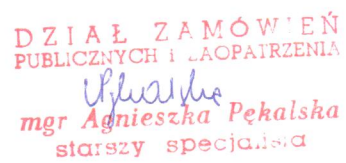 DZIAŁ ZAMÓWIEŃ
PUBLICZNYCH i ZAOPATRZENIA
mgr Agnieszka Pękalska
starszy specjalista